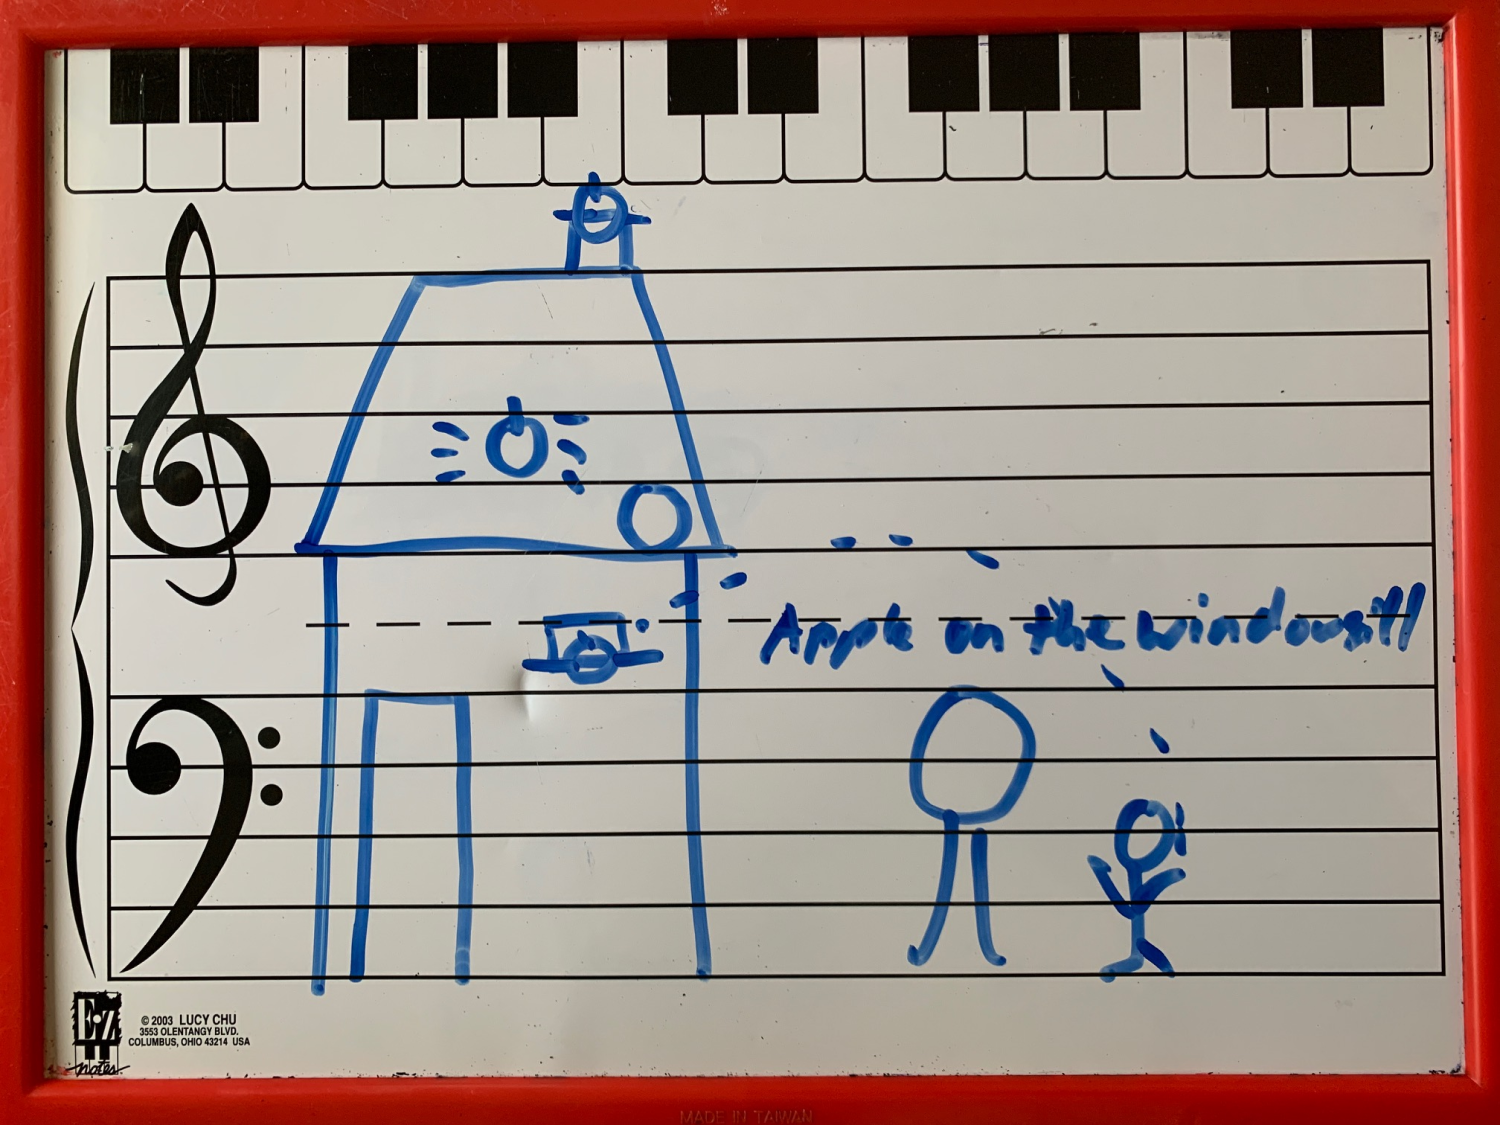 Apple on the windowsill
E-Z
notes
© 2003 LUCY CHU
3553 OLENTANGY BLVD.
COLUMBUS, OHIO 43214 USA
MADE IN TAIWAN